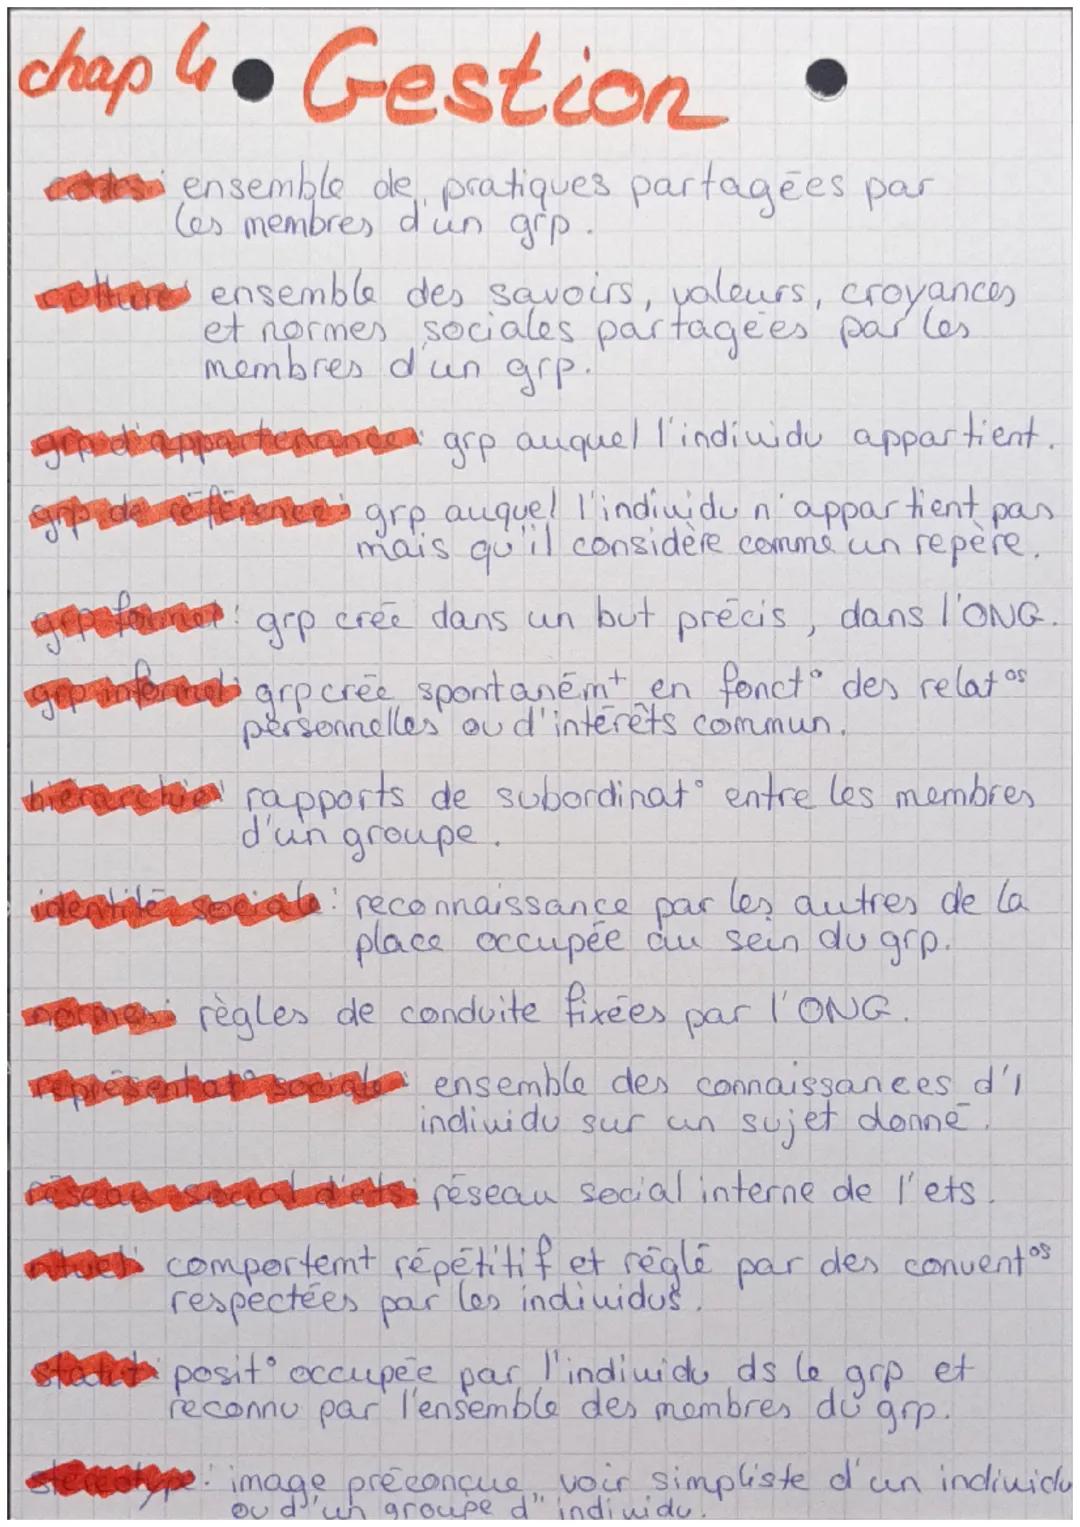 chap 4 Gestion
codes : ensemble de pratiques partagées par
les membres d'un grp.
culture : ensemble des savoirs, valeurs, croyances
et normes sociales partagées par les
membres d'un grp.
grp d'appartenance : grp auquel l'individu appartient.
grp de référence : grp auquel l'individu n'appartient pas
mais qu'il considère comme un repère.
grp formel : grp crée dans un but précis, dans l'ONG.
grp informel : grp crée spontaném+ en fonct° des relat°s
personnelles ou d'intérêts commun.
hiérarchie : rapports de subordinat° entre les membres
d'un groupe.
identité sociale : reconnaissance par les autres de la
place occupée au sein du grp.
normes : règles de conduite fixées par l'ONG.
représentat° sociale : ensemble des connaissances d'1
individu sur un sujet donné.
réseau social d'ets : réseau social interne de l'ets.
rituel : comportemt répétitif et réglé par des convent°s
respectées par les individus.
statut : posit° occupée par l'individu ds le grp et
reconnu par l'ensemble des membres du grp.
stéréotype : image préconçue, voir simpliste d'un individu
ou d'un groupe d'' individu.